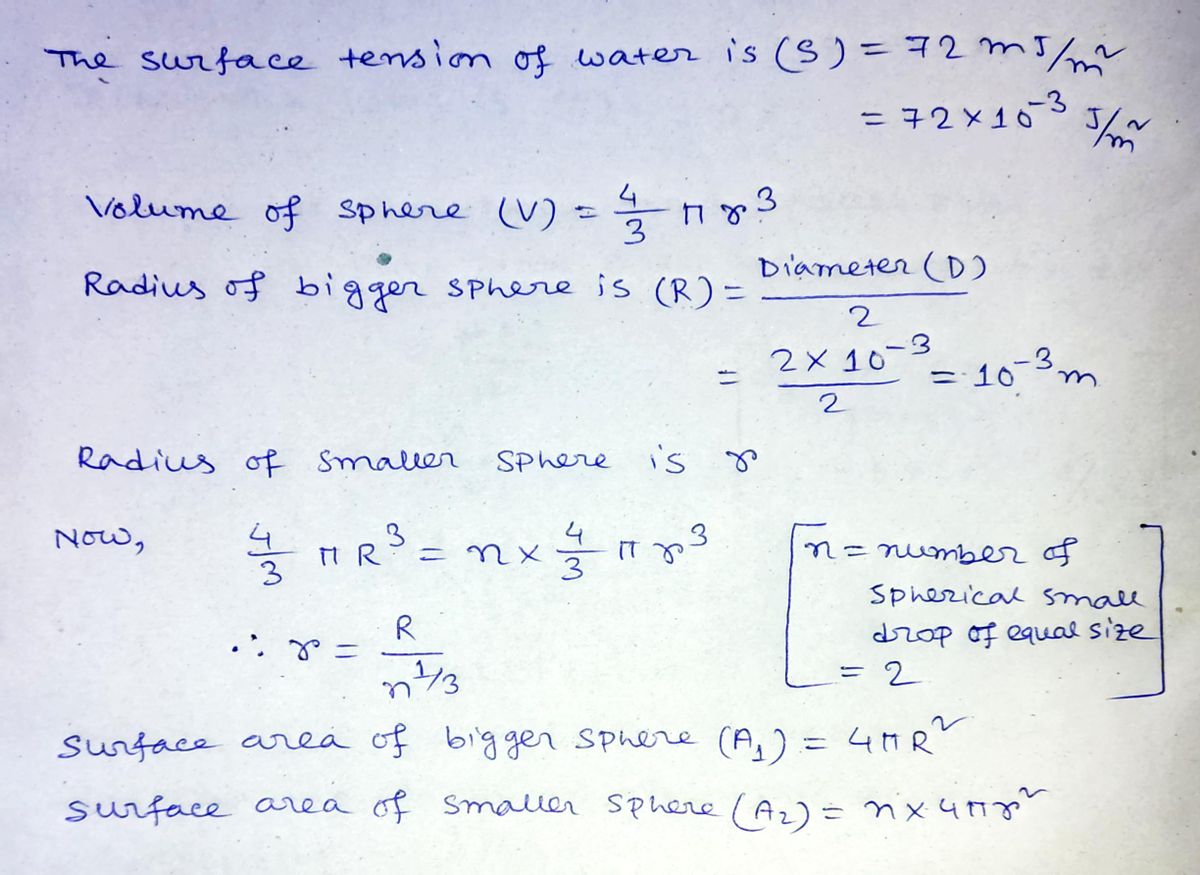 The surface tension of water is (S) = 72 mJ/m²
= 72 × 10⁻³ J/m²
Volume of sphere (V) = 4/3 π r³
Radius of bigger sphere is (R) = Diameter (D)/2
= 2 × 10⁻³/2 = 10⁻³ m
Radius of smaller sphere is r
Now, 4/3 π R³ = n × 4/3 π r³
[n = number of
spherical small
drop of equal size
= 2]
∴ r = R/n^1/3
Surface area of bigger sphere (A₁) = 4πR²
Surface area of smaller sphere (A₂) = n × 4πr²